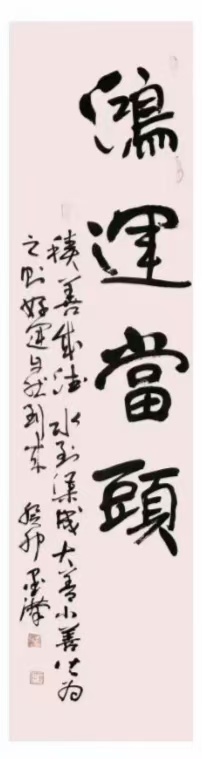 鴻運當頭
積善成德水到渠成大善小善皆為
之則好運自然到來 癸卯